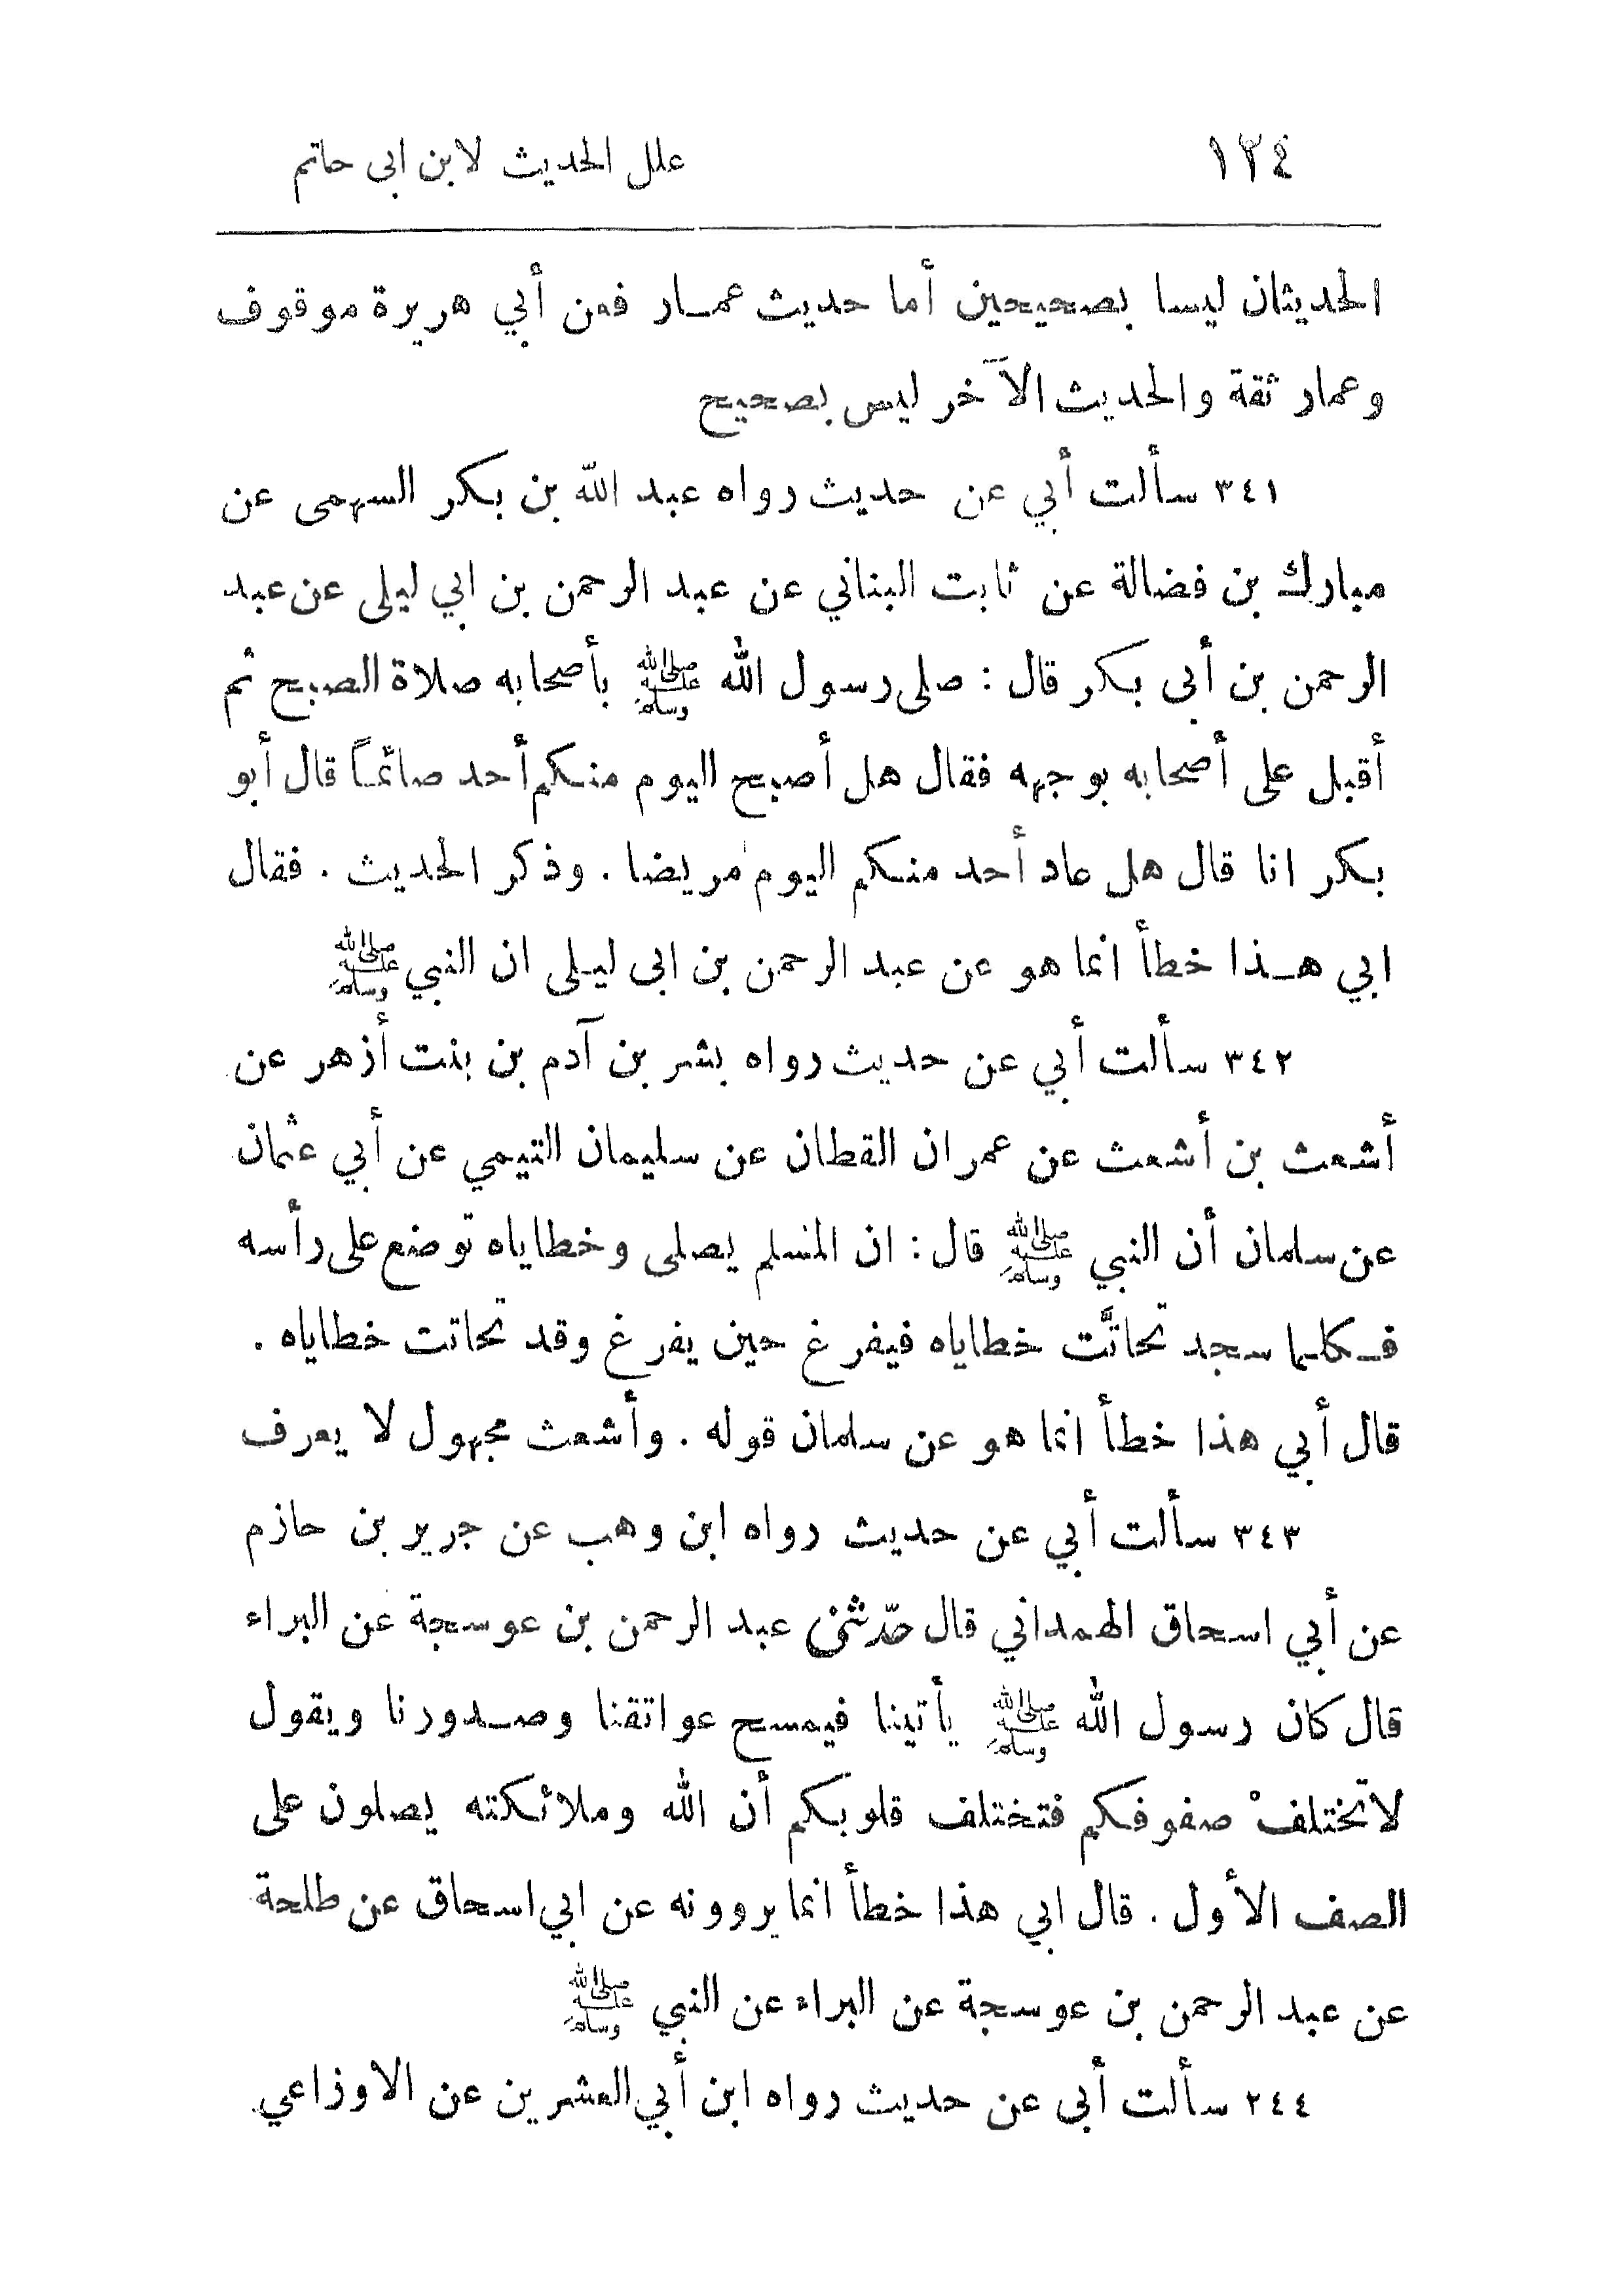 ١٢٤ علل الحديث لابن ابى حاتم
الحديثان ليسا بصحيحين أما حديث عمار فعن أبي هريرة موقوف
وعمار ثقة والحديث الآخر ليس بصحيح
٣٤١ سألت أبي عن حديث رواه عبد الله بن بكر السهمى عن
مبارك بن فضالة عن ثابت البناني عن عبد الرحمن بن ابي ليلى عن عبد
الرحمن بن أبى بكر قال : صلى رسول الله ﷺ بأصحابه صلاة الصبح ثم
أقبل على أصحابه بوجهه فقال هل أصبح اليوم منكم أحد صائماً قال أبو
بكر انا قال هل عاد أحد منكم اليوم مريضا . وذكر الحديث . فقال
ابي هذا خطأ انما هو عن عبد الرحمن بن ابى ليلى ان النبي ﷺ
٣٤٢ سألت أبي عن حديث رواه بشر بن آدم بن بنت أزهر عن
أشعث بن أشعث عن عمران القطان عن سليمان التيمي عن أبي عثمان
عن سلمان أن النبي ﷺ قال : ان المسلم يصلى وخطاياه توضع على رأسه
فكلما سجد تحاتَّت خطاياه فيفرغ حين يفرغ وقد تحاتت خطاياه .
قال أبي هذا خطأ انما هو عن سلمان قوله . وأشعث مجهول لا يعرف
٣٤٣ سألت أبي عن حديث رواه ابن وهب عن جرير بن حازم
عن أبي اسحاق الهمداني قال حدّثنى عبد الرحمن بن عوسجة عن البراء
قال كان رسول الله ﷺ يأتينا فيمسح عواتقنا وصدورنا ويقول
لا تختلفْ صفوفكم فتختلف قلوبكم أن الله وملائكته يصلون على
الصف الأول . قال ابي هذا خطأ انما يروونه عن ابي اسحاق عن طلحة
عن عبد الرحمن بن عوسجة عن البراء عن النبي ﷺ
٢٤٤ سألت أبى عن حديث رواه ابن أبي العشرين عن الاوزاعي